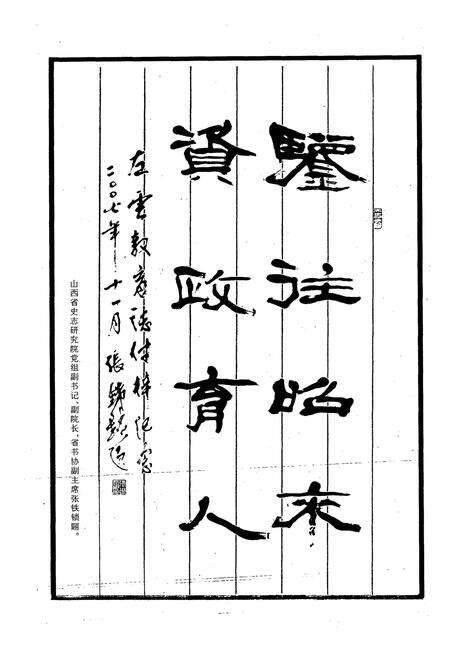 鑒往昭来
資政育人
左雲教育誌付梓纪念
二〇〇七年十一月 張鐵鎖題
山西省史志研究院党组副书记、副院长，省书协副主席张铁锁题。